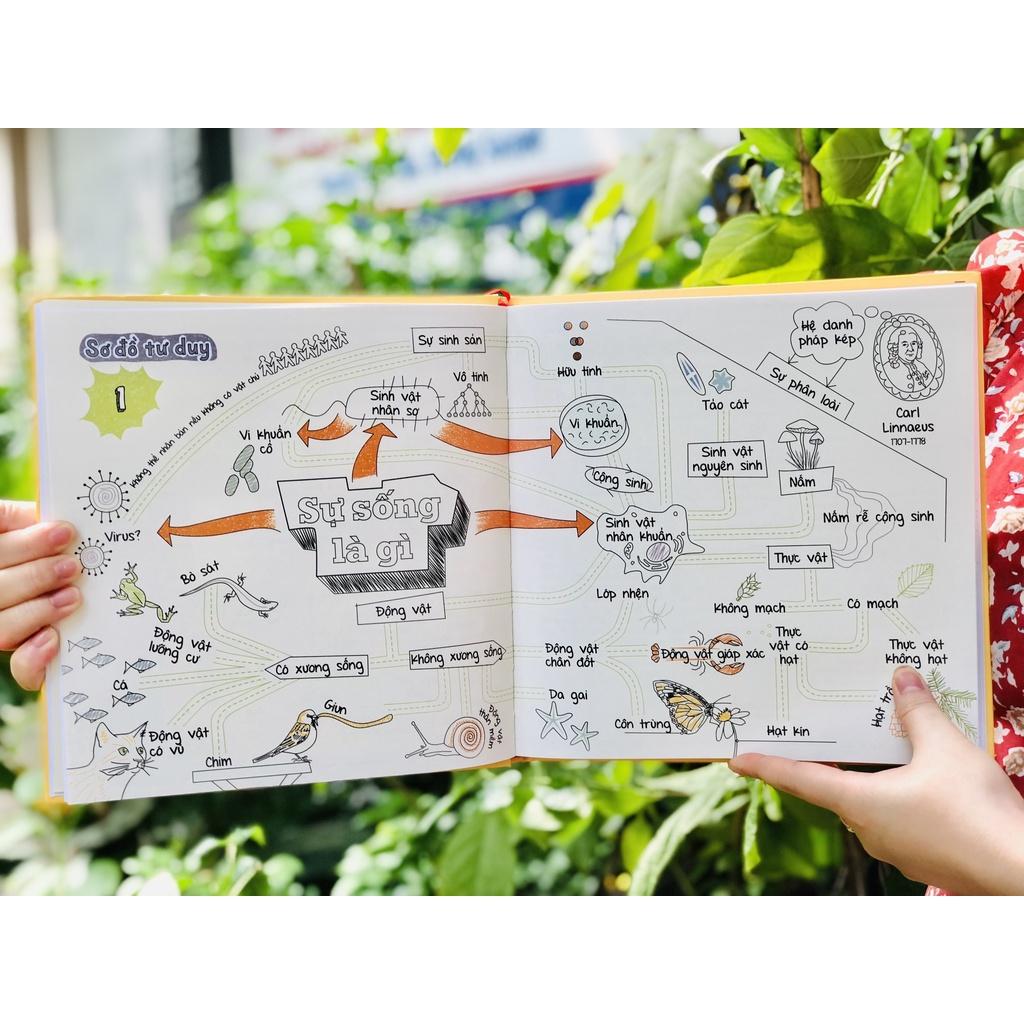 Sơ đồ tư duy
1
Không thể nhân bản nếu không có vật chủ
Sự sinh sản
Sinh vật
nhân sơ
Vô tính
Vi khuẩn
cổ
Sự sống
là gì
Virus?
Bò sát
Động vật
lưỡng cư
Động vật
Có xương sống
Không xương sống
Cá
Động vật
có vú
Chim
Giun
Động vật
thân mềm
Hữu tính
Vi khuẩn
Cộng sinh
Sinh vật
nhân khuẩn
Tảo cát
Sinh vật
nguyên sinh
Hệ danh
pháp kép
Sự phân loài
Carl
Linnaeus
1707-1778
Nấm
Nấm rễ cộng sinh
Thực vật
Lớp nhện
Không mạch
Có mạch
Động vật
chân đốt
Động vật giáp xác
Thực
vật có
hạt
Thực vật
không hạt
Da gai
Côn trùng
Hạt kín
Hạt trầ